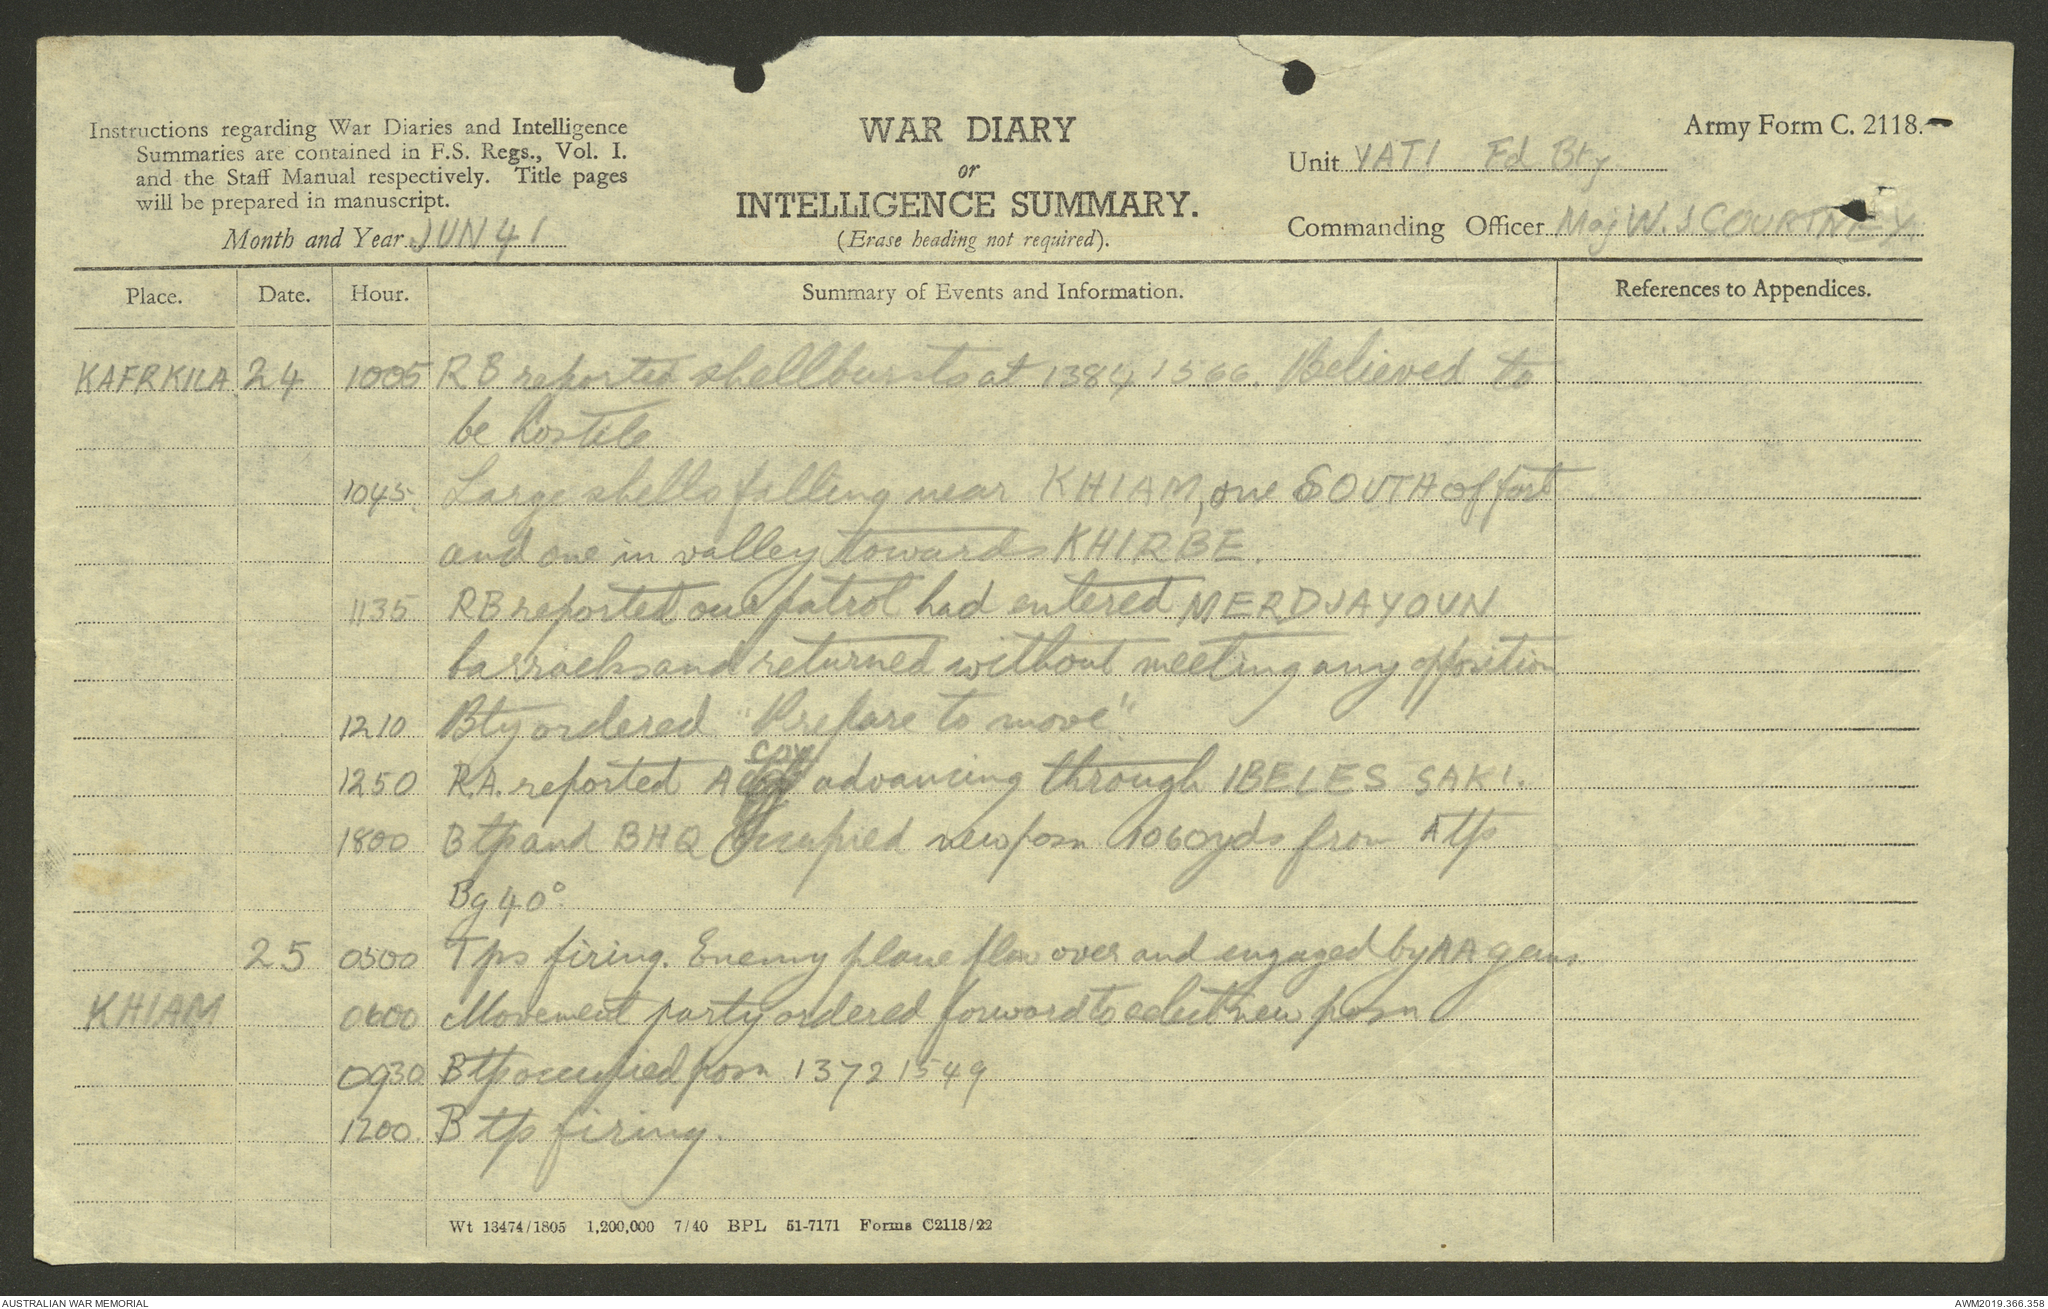 Instructions regarding War Diaries and Intelligence
Summaries are contained in F.S. Regs., Vol. I.
and the Staff Manual respectively. Title pages
will be prepared in manuscript.
Month and Year JUN 41
WAR DIARY
or
INTELLIGENCE SUMMARY.
(Erase heading not required).
Army Form C. 2118.
Unit YATI Fd Bty
Commanding Officer Maj W. J COURTNEY.
Place. Date. Hour. Summary of Events and Information. References to Appendices.
KAFRKILA 24 1005 RB reported shellbursts at 1384 1566. Believed to
be hostile
1045 Large shells falling near KHIAM, one SOUTH of fort
and one in valley towards KHIRBE.
1135 RB reported our patrol had entered MERDJAYOUN
barracks and returned without meeting any opposition
1210 Bty ordered "Prepare to move".
1250 R.A. reported A coy advancing through IBELES SAKI.
1800 B tp and BHQ occupied new posn 1060 yds from A tp
Bg 40°.
25 0500 Tps firing. Enemy plane flew over and engaged by AA guns.
KHIAM 0600 Movement party ordered forward to select new posn
0930 B tp occupied posn 1372 1549
1200 B tp firing.
Wt 13474/1805 1,200,000 7/40 BPL 51-7171 Forms C2118/22
AUSTRALIAN WAR MEMORIAL
AWM2019.366.358